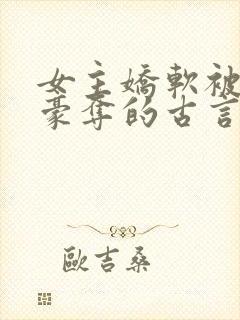 女主嬌軟被
豪奪的古言
歐吉桑